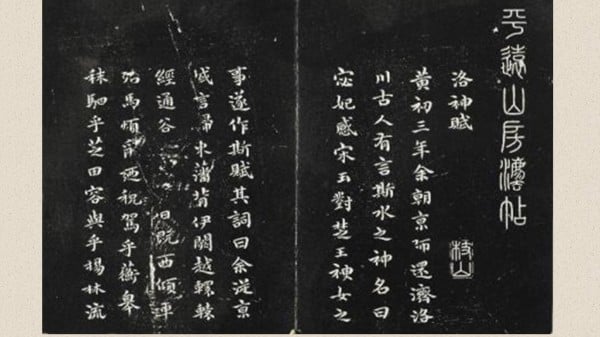 平遠山房灋帖
枝山
洛神賦
黄初三年余朝京師還濟洛
川古人有言斯水之神名曰
宓妃感宋玉對楚王神女之
事遂作斯賦其詞曰余從京
域言歸東藩背伊闕越轘轅
經通谷日既西傾車
殆馬煩爾迺税駕乎蘅皋
秣駟乎芝田容與乎楊林流